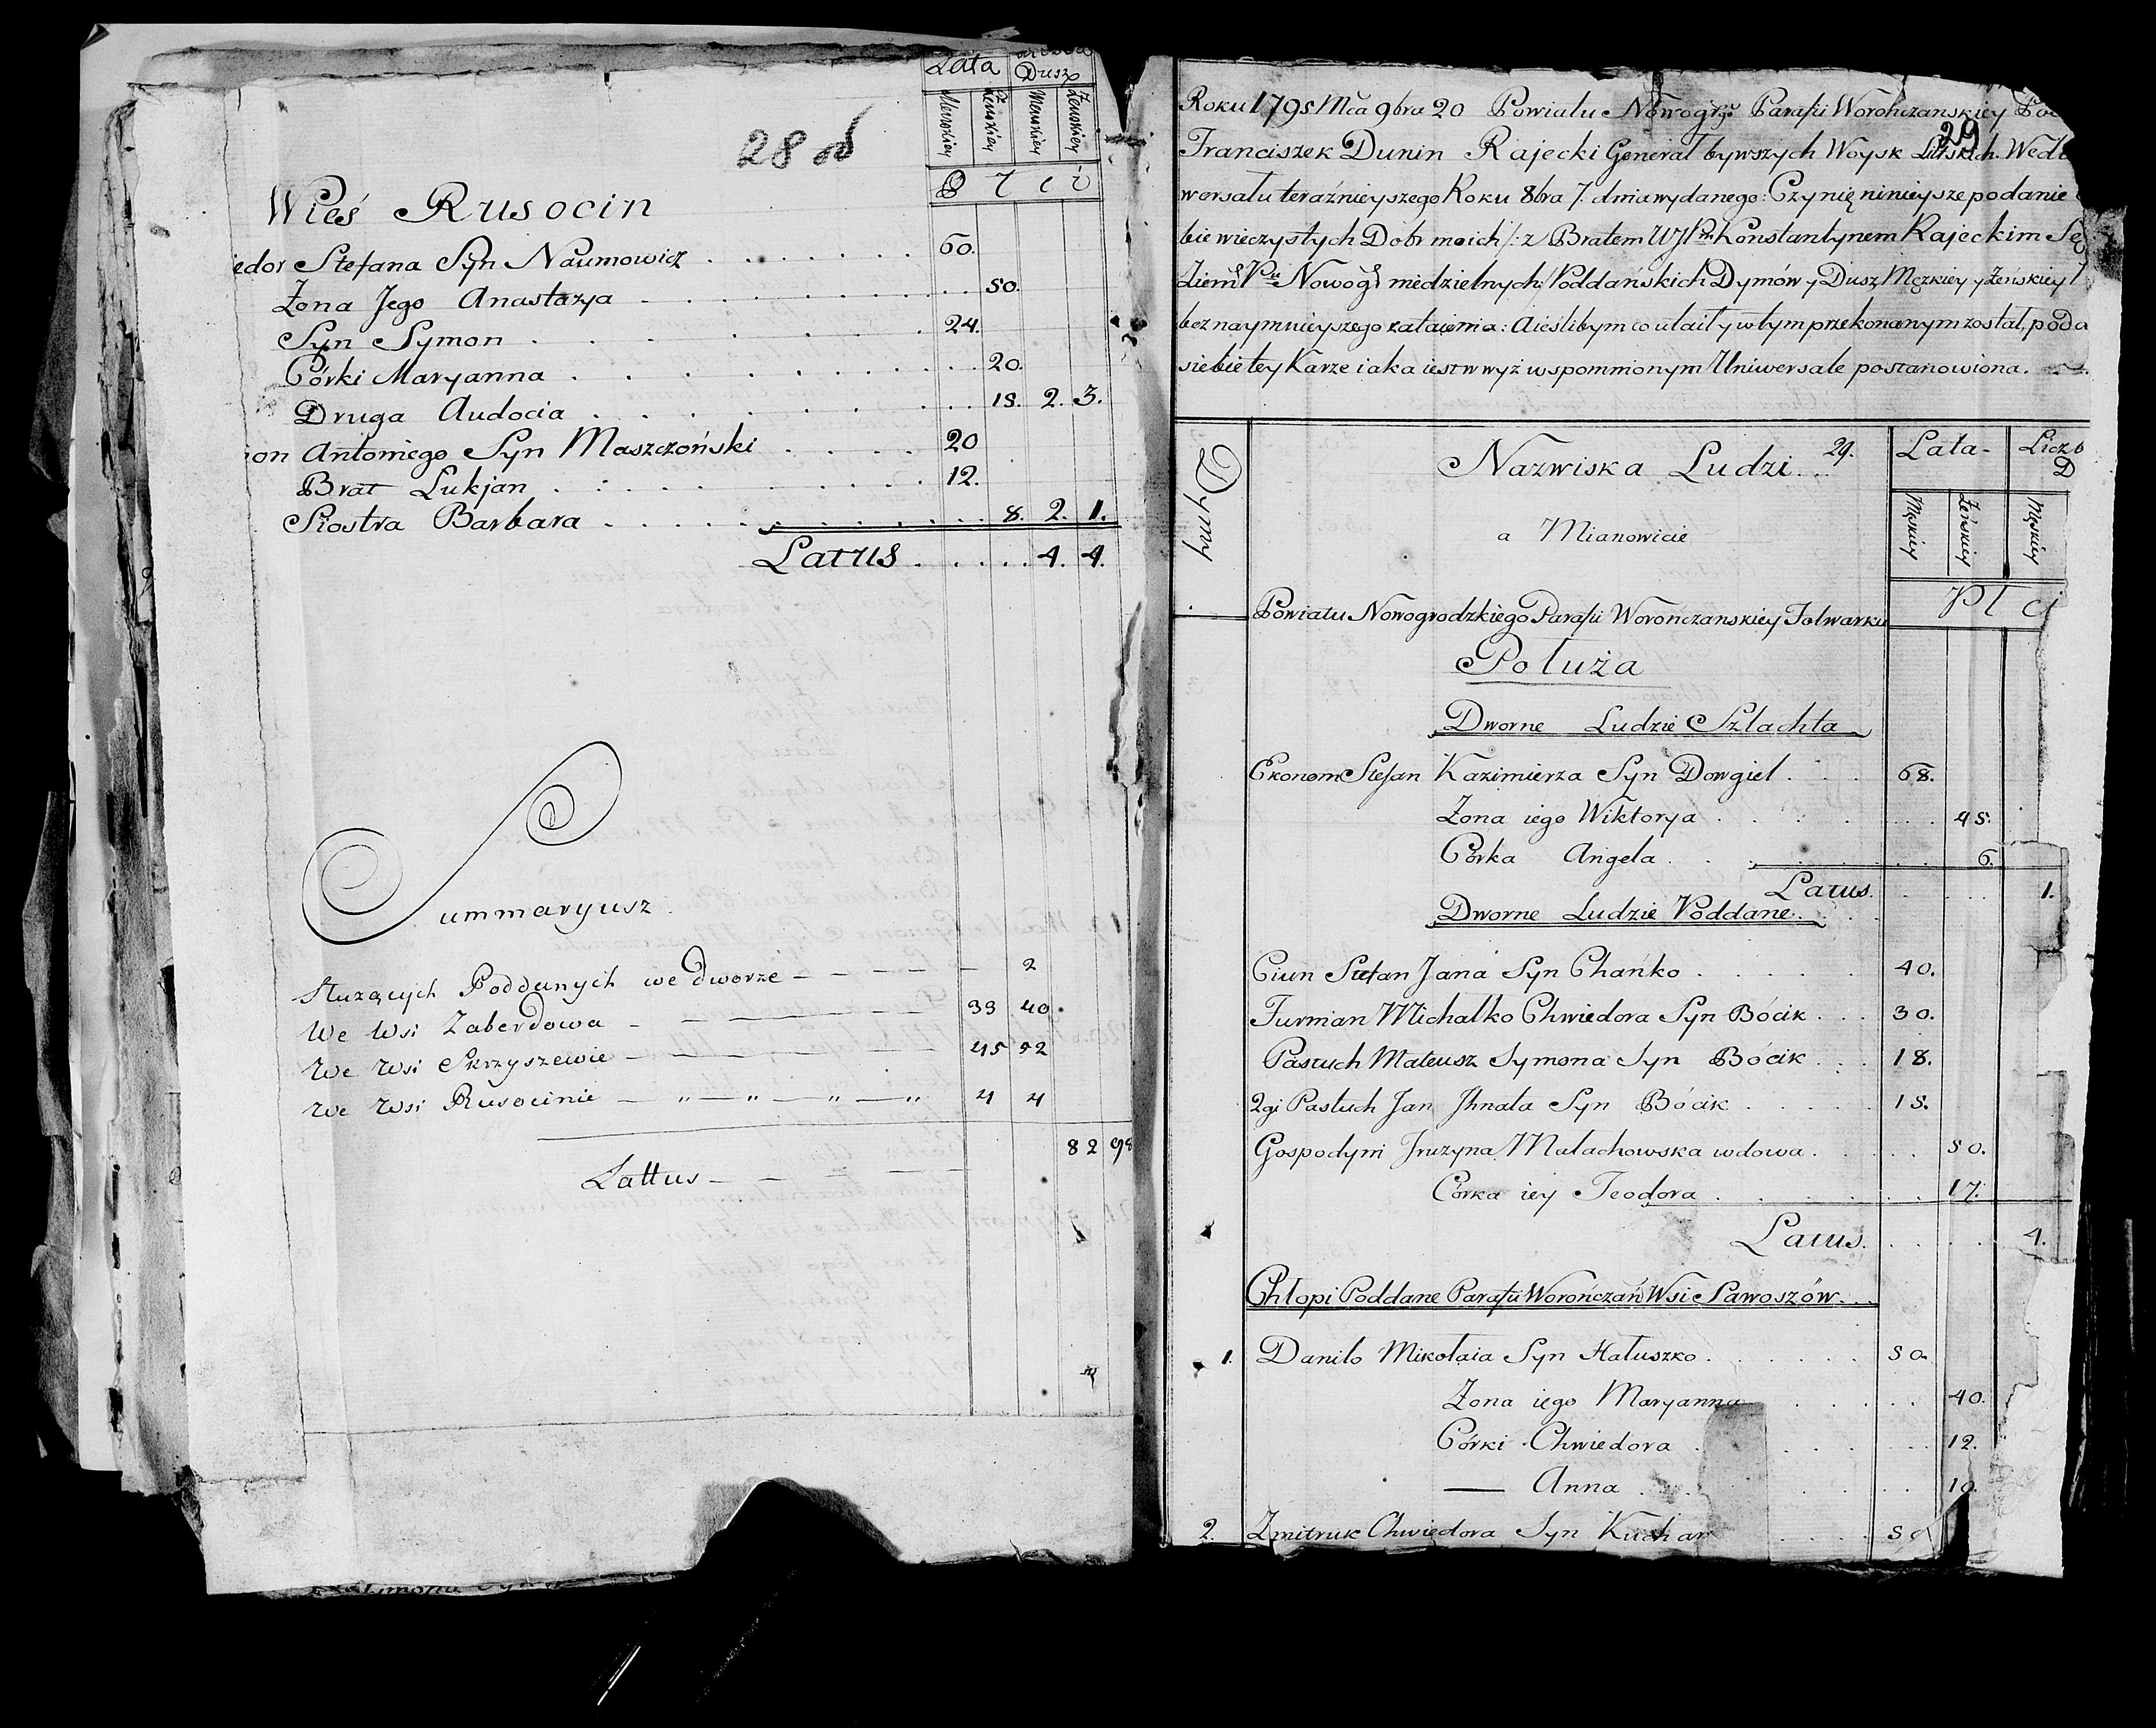 Lata
Dusz
Męskiey Żenskiey Męskiey Żenskiey
28 об
P ł c i
Wieś Rusocin
edor Stefana Syn Naumowicz . . . . . . . 60.
Żona Jego Anastazya . . . . . . . 50.
Syn Symon . . . . . . 24.
Córki Maryanna . . . . . . . 20.
Druga Audocia . . . . . . . 18. 2. 3.
on Antoniego Syn Maszczoński . . . . 20
Brat Lukjan . . . . . . . 12.
Siostra Barbara . . . . . . . 8. 2. 1.
Latus . . . . . 4. 4.
Summaryusz.
Służących Poddanych we Dworze — — — — — 2
We Wsi Zaberdowa — — — — — 33 40.
We Wsi Skrzyszewie — — — — — 45 52
We Wsi Rusocinie — „ — „ — „ — „ 4 4
82 98
Lattus — — — —
Roku 1795 Mca 9bra 20 Powiatu Nowogrgo Parafii Worończanskiey
29
Franciszek Dunin Rajecki Generał bywszych Woysk Littskich. Wedł
wersału teraźnieyszego Roku 8bra 7. dnia wydanego: Czynię ninieysze podanie
bie wieczystych Dobr moich /: z Bratem WJPm Konstantynem Rajeckim Sę
Ziemś Ptu Nowogś niedzielnych :/ Poddańskich Dymów y Dusz Męzkiey y Żeńskiey
bez naymnieyszego zataienia: A ieślibym co utaił y w tym przekonanym został, podа
siebie tey Karze iaka iest w wyż wspomnionym Uniwersale postanowiona.
Dymy
Nazwiska Ludzi . . 29.
Lata -
Liczb
D
a Mianowicie
Męskiey Żeńskiey Męskiey
Pł ci
Powiatu Nowogrodzkiego Parafii Worończanskiey Folwarku
Połuża
Dworne Ludzie Szlachta
Ekonom Stefan Kazimierza Syn Dowgieł . . . 68.
Żona iego Wiktorya . . . . . . . 45.
Córka Angela . . . . . . . 6.
Latus. . . . . 1.
Dworne Ludzie Poddane. . . .
Ciun Stefan Jana Syn Chańko . . . . . 40.
Furman Michałko Chwiedora Syn Bócik . . . 30.
Pastuch Mateusz Symona Syn Bócik . . . 18.
2gi Pastuch Jan Jhnata Syn Bócik . . . . . 15.
Gospodyni Jruzyna Małachowska wdowa . . . . . 50.
Córka iey Teodora . . . . . . 17.
Latus. . . . . 4.
Chłopi Poddane Parafii Worończań Wsi Sawoszów . . .
1. Daniło Mikołaia Syn Hałuszko . . . . . . 50.
Żona iego Maryanna . . . . . 40.
Córki Chwiedora . . . . . . 12.
— Anna . . . . . . 10.
2. Zmitruk Chwiedora Syn Kuchar . . . .